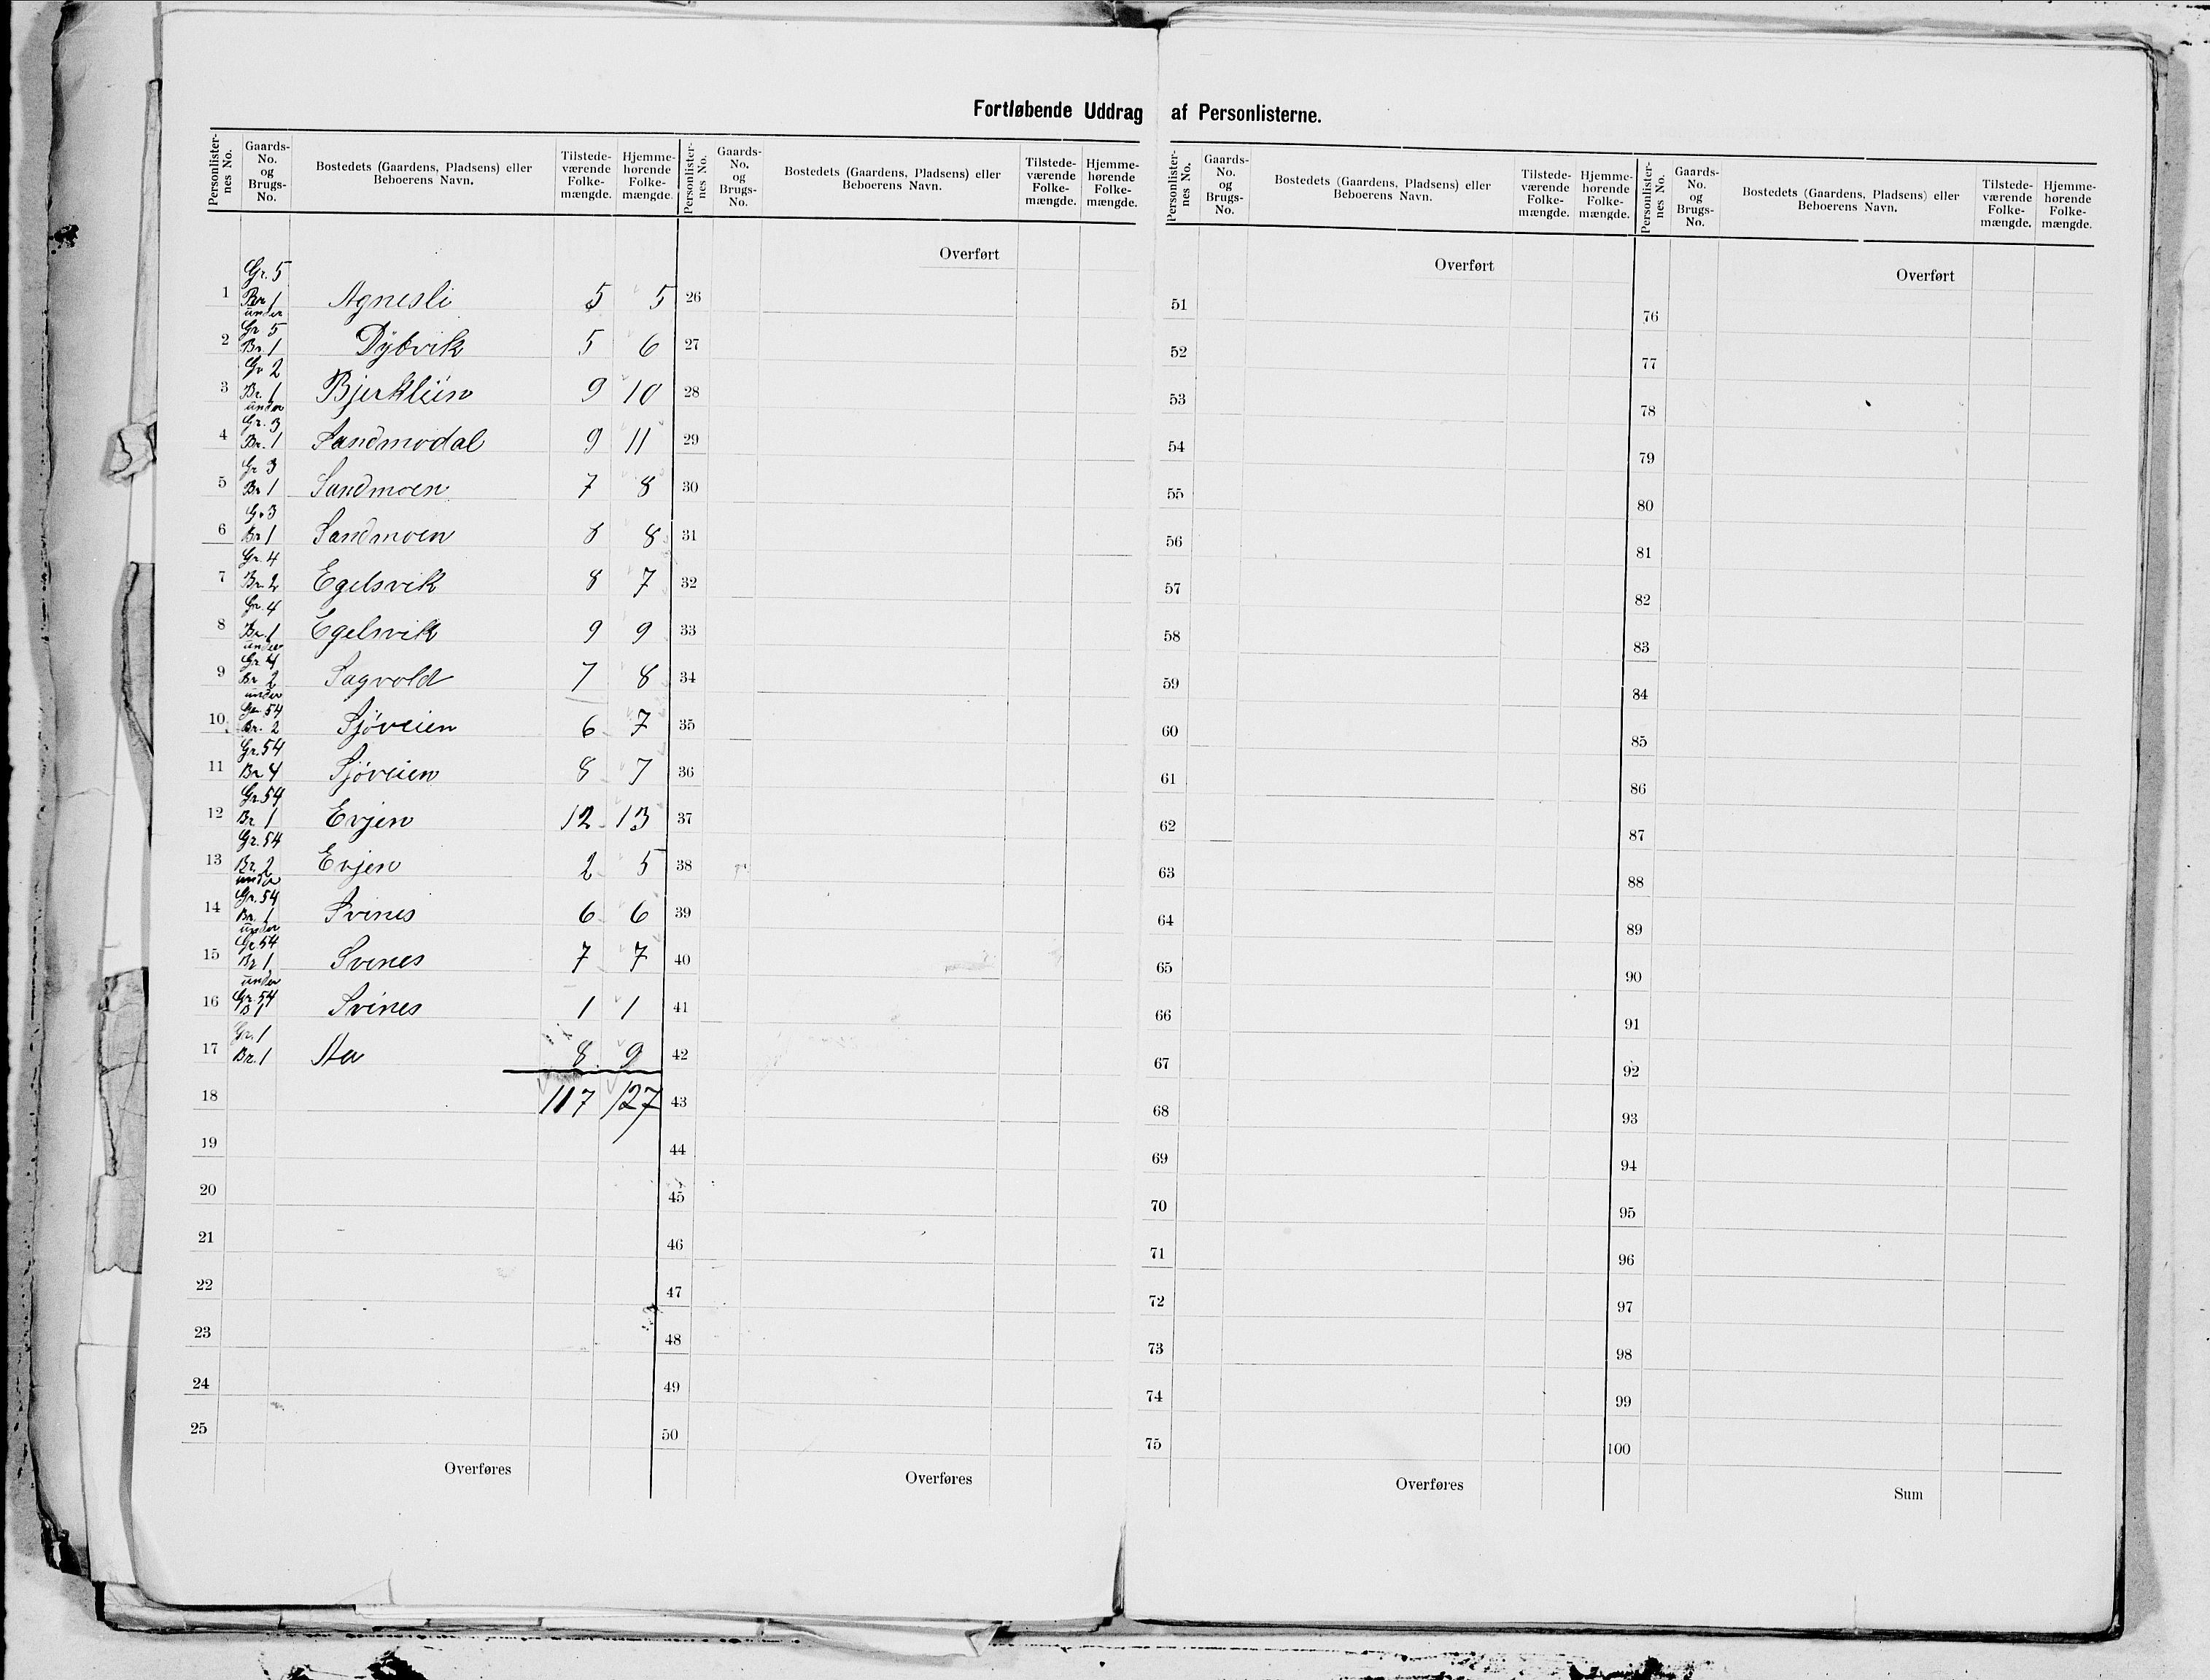 Fortløbende Uddrag af Personlisterne.
Personlisternes No. Gaards-No. og Brugs-No. Bostedets (Gaardens, Pladsens) eller Beboerens Navn. Tilstedeværende Folkemængde. Hjemmehørende Folkemængde.
Gr. 5
1 Br 1 Agnesli 5 5
under
Gr 5
2 Br. 1 Dybvik 5 6
Gr 2
3 Br. 1 Bjerkliin 9 10
under
Gr. 3
4 Br. 1 Sandmodal 9 11
Gr 3
5 Br 1 Sandmoen 7 8
Gr 3
6 Br 1 Sandmoen 8 8
Gr. 4
7 Br. 2 Egelsvik 8 7
Gr. 4
8 Br. 1 Egelsvik 9 9
under
Gr 4
9 Br 2 Sagvold 7 8
under
Gr 54
10 Br. 2 Sjöveien 6 7
Gr. 54
11 Br 4 Sjöveien 8 7
Gr. 54
12 Br 1 Evjen 12 13
Gr. 54
13 Br. 2 Evjen 2 5
under
Gr. 54
14 Br. 1 Svines 6 6
under
Gr 54
15 Br 1 Svines 7 7
under
Gr. 54
16 B 1 Svines 1 1
Gr. 1
17 Br. 1 Aa 8 9
18 117 127
19
20
21
22
23
24
25
Overføres
Personlisternes No. Gaards-No. og Brugs-No. Bostedets (Gaardens, Pladsens) eller Beboerens Navn. Tilstedeværende Folkemængde. Hjemmehørende Folkemængde.
Overført
26
27
28
29
30
31
32
33
34
35
36
37
38
39
40
41
42
43
44
45
46
47
48
49
50
Overføres
Personlisternes No. Gaards-No. og Brugs-No. Bostedets (Gaardens, Pladsens) eller Beboerens Navn. Tilstedeværende Folkemængde. Hjemmehørende Folkemængde.
Overført
51
52
53
54
55
56
57
58
59
60
61
62
63
64
65
66
67
68
69
70
71
72
73
74
75
Overføres
Personlisternes No. Gaards-No. og Brugs-No. Bostedets (Gaardens, Pladsens) eller Beboerens Navn. Tilstedeværende Folkemængde. Hjemmehørende Folkemængde.
Overført
76
77
78
79
80
81
82
83
84
85
86
87
88
89
90
91
92
93
94
95
96
97
98
99
100
Sum